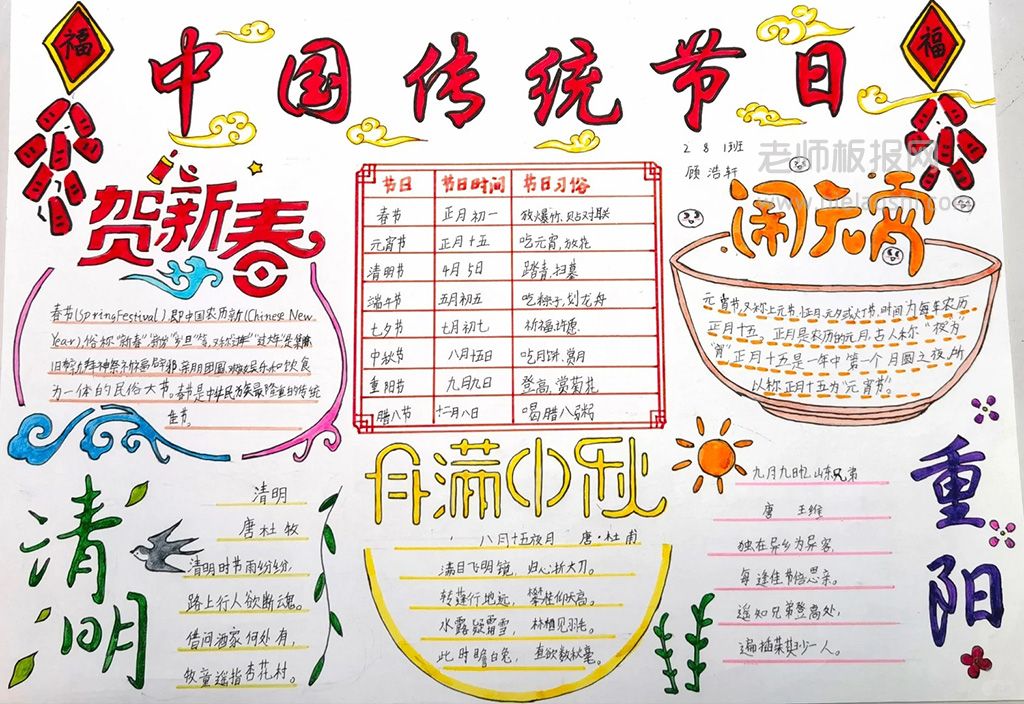 福
中国传统节日
福
2 8 1班
顾浩轩
老师板报网
贺新春
春节(Spring Festival),即中国农历新(Chinese New
Year),俗称“新春”
为一体的民俗大节。春节是中华民族最隆重的传统
佳节。
节日 节日时间 节日习俗
春节 正月初一 放爆竹,贴对联
元宵节 正月十五 吃元宵,放花
清明节 4月5日 踏青,扫墓
端午节 五月初五 吃粽子,划龙舟
七夕节 七月初七 祈福许愿
中秋节 八月十五日 吃月饼,赏月
重阳节 九月九日 登高,赏菊花
腊八节 十二月八日 喝腊八粥
闹元宵
元宵节,又称上元节,小正月,元夕或灯节,时间为每年农历
正月十五。正月是农历的元月,古人称“夜”为
“宵”正月十五是一年中第一个月圆之夜,所
以称正月十五为“元宵节”。
清明
清明
唐 杜牧
清明时节雨纷纷,
路上行人欲断魂。
借问酒家何处有,
牧童遥指杏花村。
月满中秋
八月十五夜月 唐·杜甫
满目飞明镜, 归心折大刀。
转蓬行地远, 攀桂仰天高。
水露疑霜雪, 林栖见羽毛。
此时瞻白兔, 直欲数秋毫。
重阳
九月九日忆山东兄弟
唐 王维
独在异乡为异客,
每逢佳节倍思亲。
遥知兄弟登高处,
遍插茱萸少一人。